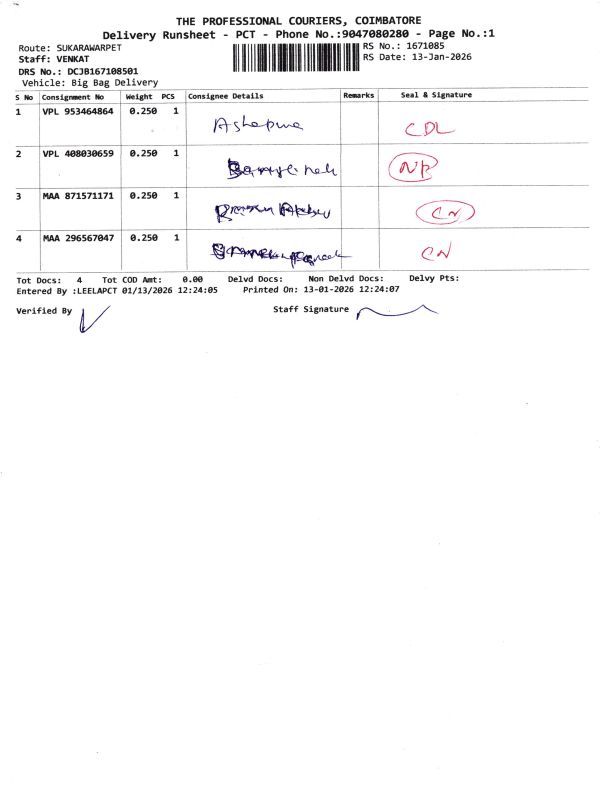 THE PROFESSIONAL COURIERS, COIMBATORE
Delivery Runsheet - PCT - Phone No.:9047080280 - Page No.:1
Route: SUKARAWARPET
Staff: VENKAT
DRS No.: DCJB167108501
Vehicle: Big Bag Delivery
RS No.: 1671085
RS Date: 13-Jan-2026
S No Consignment No Weight PCS Consignee Details Remarks Seal & Signature
1 VPL 953464864 0.250 1 CDL
2 VPL 408030659 0.250 1 NP
3 MAA 871571171 0.250 1 CN
4 MAA 296567047 0.250 1 CN
Tot Docs: 4 Tot COD Amt: 0.00 Delvd Docs: Non Delvd Docs: Delvy Pts:
Entered By :LEELAPCT 01/13/2026 12:24:05 Printed On: 13-01-2026 12:24:07
Verified By Staff Signature